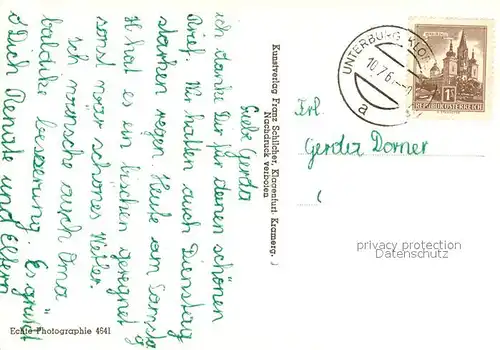 Liebe Gerda
ich danke Dir für deinen schönen
Brief. Wir hatten auch Dienstag
starken regen. Heute am Samsta
H hat es ein bischen geregnet
sonst wäre schönes Wetter.
ich wünsche auch Oma
baldige besserung. Es grüßt
Dich Renate und Eltern
Echte Photographie 4641
Kunstverlag Franz Schilcher, Klagenfurt, Kramerg. 1
Nachdruck verboten
UNTERBURG KLOP
10.7.6
a
REPUBLIK ÖSTERREICH
Frl.
Gerda Dorner
privacy protection